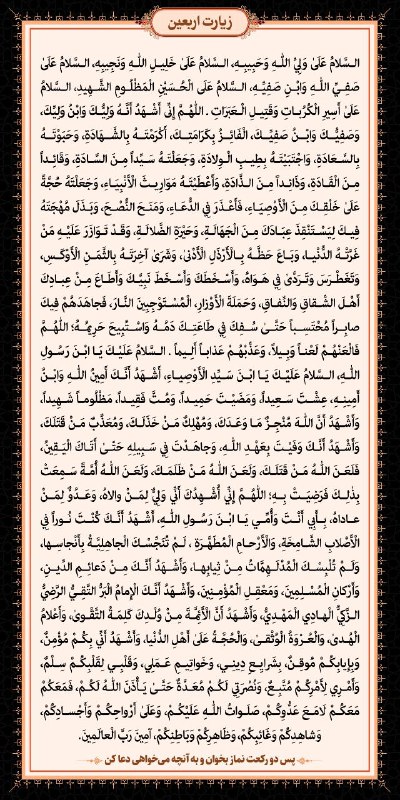 زیارت اربعین
السَّلامُ عَلَىٰ وَلِيِّ اللّٰهِ وَحَبِيبِهِ، السَّلامُ عَلَىٰ خَلِيلِ اللّٰهِ وَنَجِيبِهِ، السَّلامُ عَلَىٰ
صَفِيِّ اللّٰهِ وَابْنِ صَفِيِّهِ، السَّلامُ عَلَى الْحُسَيْنِ الْمَظْلُومِ الشَّهِيدِ، السَّلامُ
عَلَىٰ أَسِيرِ الْكُرُباتِ وَقَتِيلِ الْعَبَراتِ . اللّٰهُمَّ إِنِّى أَشْهَدُ أَنَّهُ وَلِيُّكَ وَابْنُ وَلِيِّكَ،
وَصَفِيُّكَ وَابْنُ صَفِيِّكَ، الْفَائِزُ بِكَرَامَتِكَ، أَكْرَمْتَهُ بِالشَّهَادَةِ، وَحَبَوْتَهُ
بِالسَّعَادَةِ، وَاجْتَبَيْتَهُ بِطِيبِ الْوِلادَةِ، وَجَعَلْتَهُ سَيِّداً مِنَ السَّادَةِ، وَقَائِداً
مِنَ الْقَادَةِ، وَذَائِداً مِنَ الذَّادَةِ، وَأَعْطَيْتَهُ مَوَارِيثَ الْأَنْبِيَاءِ، وَجَعَلْتَهُ حُجَّةً
عَلَىٰ خَلْقِكَ مِنَ الْأَوْصِيَاءِ، فَأَعْذَرَ فِي الدُّعَاءِ، وَمَنَحَ النُّصْحَ، وَبَذَلَ مُهْجَتَهُ
فِيكَ لِيَسْتَنْقِذَ عِبَادَكَ مِنَ الْجَهَالَةِ، وَحَيْرَةِ الضَّلالَةِ، وَقَدْ تَوَازَرَ عَلَيْهِ مَنْ
غَرَّتْهُ الدُّنْيا، وَبَاعَ حَظَّهُ بِالْأَرْذَلِ الْأَدْنىٰ، وَشَرَىٰ آخِرَتَهُ بِالثَّمَنِ الْأَوْكَسِ،
وَتَغَطْرَسَ وَتَرَدَّىٰ فِي هَوَاهُ، وَأَسْخَطَكَ وَأَسْخَطَ نَبِيَّكَ وَأَطَاعَ مِنْ عِبادِكَ
أَهْلَ الشِّقاقِ وَالنِّفاقِ، وَحَمَلَةَ الْأَوْزارِ، الْمُسْتَوْجِبِينَ النَّارَ، فَجاهَدَهُمْ فِيكَ
صابِراً مُحْتَسِباً حَتَّىٰ سُفِكَ فِي طَاعَتِكَ دَمُهُ وَاسْتُبِيحَ حَرِيمُهُ؛ اللّٰهُمَّ
فَالْعَنْهُمْ لَعْناً وَبِيلاً، وَعَذِّبْهُمْ عَذاباً أَلِيماً . السَّلامُ عَلَيْكَ يَا ابْنَ رَسُولِ
اللّٰهِ، السَّلامُ عَلَيْكَ يَا ابْنَ سَيِّدِ الْأَوْصِياءِ، أَشْهَدُ أَنَّكَ أَمِينُ اللّٰهِ وَابْنُ
أَمِينِهِ، عِشْتَ سَعِيداً، وَمَضَيْتَ حَمِيداً، وَمُتَّ فَقِيداً، مَظْلُوماً شَهِيداً،
وَأَشْهَدُ أَنَّ اللّٰهَ مُنْجِزٌ مَا وَعَدَكَ، وَمُهْلِكٌ مَنْ خَذَلَكَ، وَمُعَذِّبٌ مَنْ قَتَلَكَ،
وَأَشْهَدُ أَنَّكَ وَفَيْتَ بِعَهْدِ اللّٰهِ، وَجاهَدْتَ فِي سَبِيلِهِ حَتّىٰ أَتَاكَ الْيَقِينُ،
فَلَعَنَ اللّٰهُ مَنْ قَتَلَكَ، وَلَعَنَ اللّٰهُ مَنْ ظَلَمَكَ، وَلَعَنَ اللّٰهُ أُمَّةً سَمِعَتْ
بِذٰلِكَ فَرَضِيَتْ بِهِ؛ اللّٰهُمَّ إِنِّي أُشْهِدُكَ أَنِّي وَلِيٌّ لِمَنْ والاهُ، وَعَدُوٌّ لِمَنْ
عاداهُ، بِأَبِي أَنْتَ وَأُمِّي يَا ابْنَ رَسُولِ اللّٰهِ، أَشْهَدُ أَنَّكَ كُنْتَ نُوراً فِي
الْأَصْلابِ الشَّامِخَةِ، وَالْأَرْحامِ الْمُطَهَّرَةِ ، لَمْ تُنَجِّسْكَ الْجاهِلِيَّةُ بِأَنْجاسِها،
وَلَمْ تُلْبِسْكَ الْمُدْلَهِمَّاتُ مِنْ ثِيابِها، وَأَشْهَدُ أَنَّكَ مِنْ دَعائِمِ الدِّينِ،
وَأَرْكانِ الْمُسْلِمِينَ، وَمَعْقِلِ الْمُؤْمِنِينَ، وَأَشْهَدُ أَنَّكَ الْإِمامُ الْبَرُّ التَّقِيُّ الرَّضِيُّ
الزَّكِيُّ الْهادِي الْمَهْدِيُّ، وَأَشْهَدُ أَنَّ الْأَئِمَّةَ مِنْ وُلْدِكَ كَلِمَةُ التَّقْوىٰ، وَأَعْلامُ
الْهُدىٰ، وَالْعُرْوَةُ الْوُثْقىٰ، وَالْحُجَّةُ عَلَىٰ أَهْلِ الدُّنْيا، وَأَشْهَدُ أَنِّي بِكُمْ مُؤْمِنٌ،
وَبِإِيابِكُمْ مُوقِنٌ، بِشَرايِعِ دِينِي، وَخَواتِيمِ عَمَلِي، وَقَلْبِي لِقَلْبِكُمْ سِلْمٌ،
وَأَمْرِي لِأَمْرِكُمْ مُتَّبِعٌ، وَنُصْرَتِي لَكُمْ مُعَدَّةٌ حَتَّىٰ يَأْذَنَ اللّٰهُ لَكُمْ، فَمَعَكُمْ
مَعَكُمْ لَامَعَ عَدُوِّكُمْ، صَلَواتُ اللّٰهِ عَلَيْكُمْ، وَعَلَىٰ أَرْواحِكُمْ وَأَجْسادِكُمْ،
وَشاهِدِكُمْ وَغَائِبِكُمْ، وَظَاهِرِكُمْ وَبَاطِنِكُمْ، آمِينَ رَبَّ الْعالَمِينَ.
پس دو رکعت نماز بخوان و به آنچه می‌خواهی دعا کن